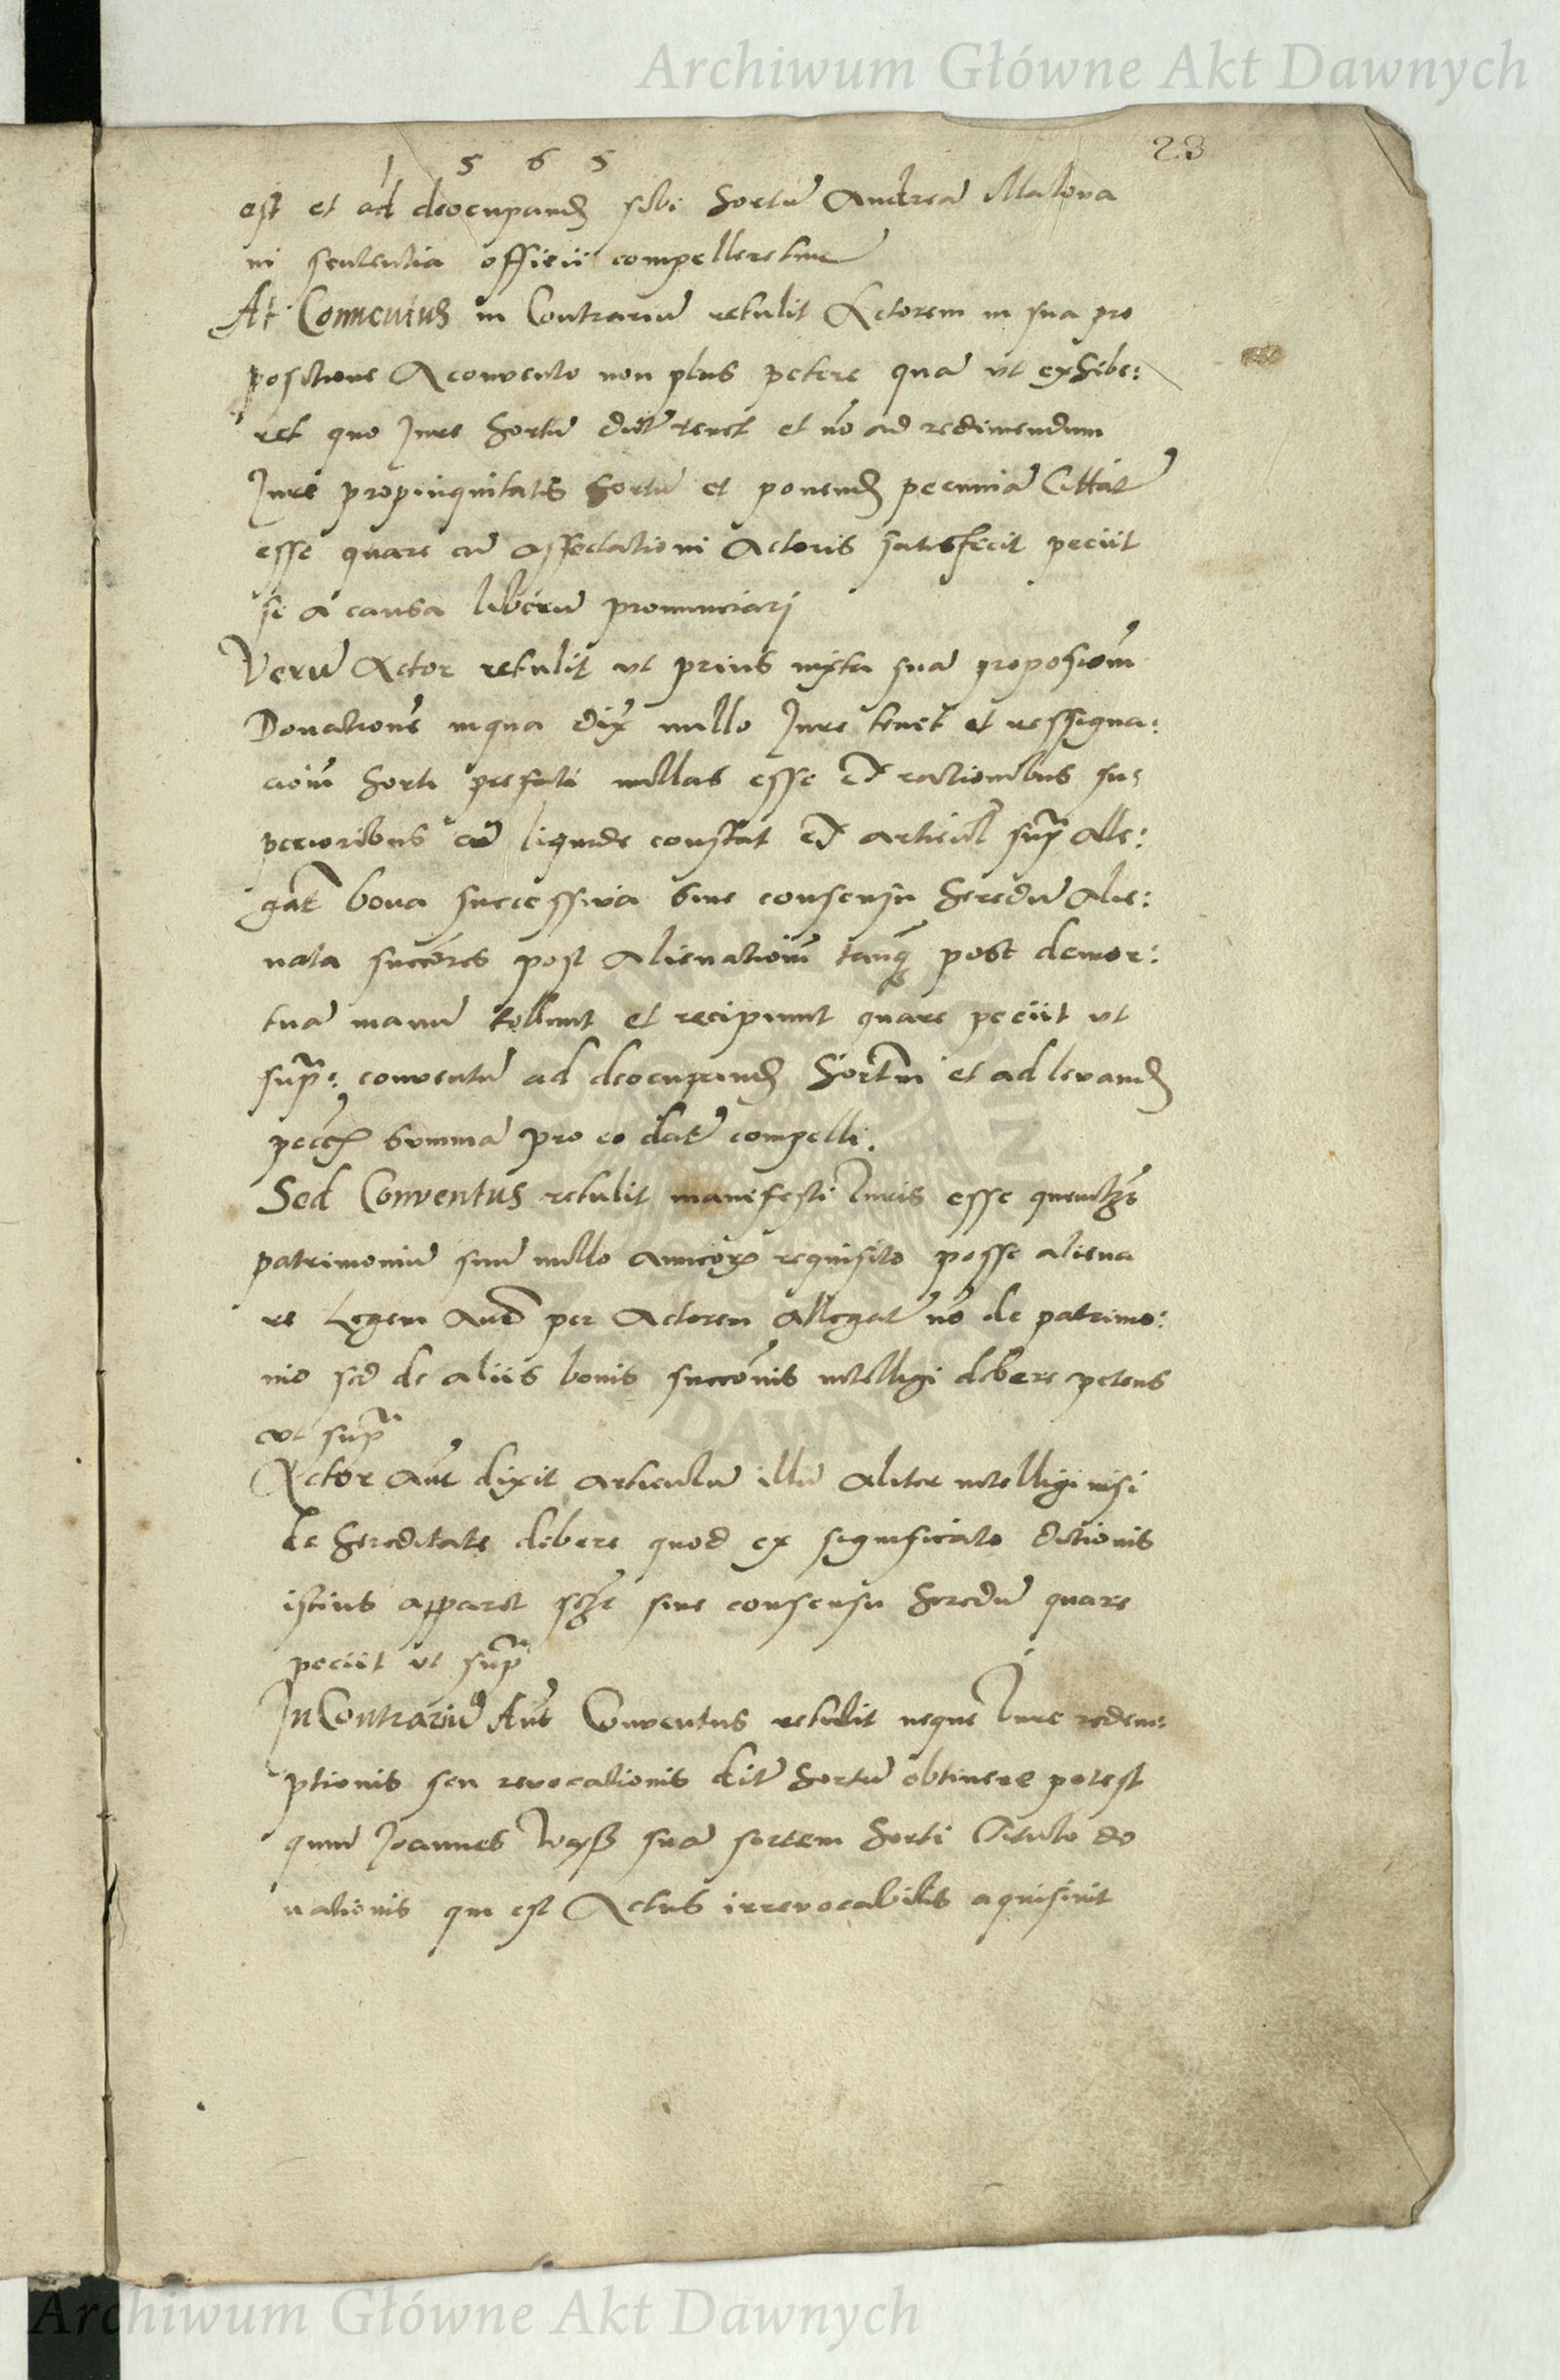 Archiwum Główne Akt Dawnych
23
1 5 6 5
est et ad deocupand sibi hortu Andrea Malova
ni sententia officii compelleretur
At Conventus in Contrariu retulit Actorem in sua pro
positione A convento non plus petere qua ut exhibe:
ret quo Jure hortu dict tenet et no ad redimendum
Jure propinquitatis hortu et ponend pecunia Cittat
esse quare cu affectationi Actoris satisfecit peciit
se a causa liberu pronunciarj
Veru Actor retulit ut prius iuxta sua proposicom
Donatione inqua dix nullo Jure tenet et ressigna:
ciom horti prefati nullas esse et rationibus su:
perioribus liquide constat et articul supra alle:
gat bona successiva sine consensu heredu alie:
nata succores post alienatiom tanq post demor:
tua manu tollunt et recipiunt quare peciit ut
supra: conventu ad deocupand hortum et ad levand
summa pro eo dat compelli.
Sed Conventus retulit manifesti Juris esse
patrimoniu suu nullo amicor requisito posse aliena
re Legem aut per Actorem allegat no de patrimo:
nio sed de aliis bonis succonis intelligi debere petens
ut supra
Actor aut dixit articulum illu aliter intelligi nisi
de hereditate debere quod ex significato dictionis
istius apparet sine consensu heredu quare
peciit ut supra
In Contrariu Aut Conventus retulit neque Jure redem:
ptionis seu revocationis dit hortu obtinere potest
quum Joannes sua sortem horti Titulo do
nationis qui est Actus irrevocabilis aquisivit
Archiwum Główne Akt Dawnych